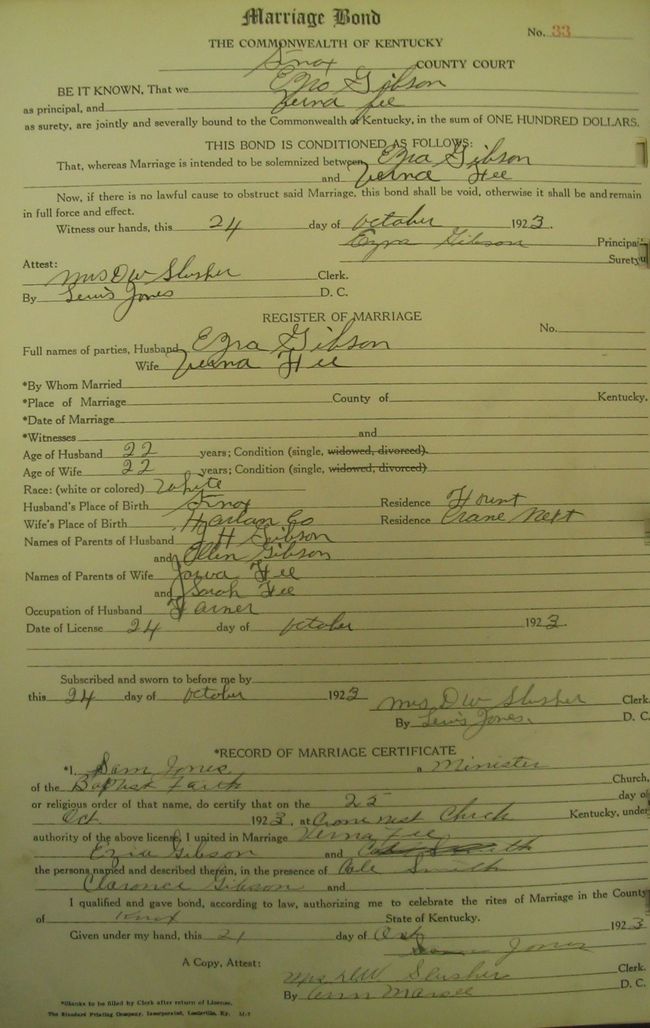 Marriage Bond
No. 33
THE COMMONWEALTH OF KENTUCKY
Knox COUNTY COURT
BE IT KNOWN, That we Gibson
as principal, and Verna Lee
as surety, are jointly and severally bound to the Commonwealth of Kentucky, in the sum of ONE HUNDRED DOLLARS.
THIS BOND IS CONDITIONED AS FOLLOWS:
That, whereas Marriage is intended to be solemnized between Ezra Gibson
and Verna Hee
Now, if there is no lawful cause to obstruct said Marriage, this bond shall be void, otherwise it shall be and remain
in full force and effect.
Witness our hands, this 24 day of October 1923.
Ezra Gibson Principal
Surety
Attest:
Mrs DW Slusher Clerk.
By Lewis Jones D. C.
REGISTER OF MARRIAGE
No.
Full names of parties, Husband Ezra Gibson
Wife Verna Hee
*By Whom Married
*Place of Marriage County of Kentucky.
*Date of Marriage
*Witnesses and
Age of Husband 22 years; Condition (single, widowed, divorced).
Age of Wife 22 years; Condition (single, widowed, divorced)
Race: (white or colored) White
Husband's Place of Birth Knox Residence
Wife's Place of Birth Harlan Co Residence Crane Nest
Names of Parents of Husband J H Gibson
and Ellen Gibson
Names of Parents of Wife Hee
and Sarah Hee
Occupation of Husband Farmer
Date of License 24 day of October 1923.
Subscribed and sworn to before me by
this 24 day of October 1923
Mrs DW Slusher Clerk
By Lewis Jones. D. C.
*RECORD OF MARRIAGE CERTIFICATE
*I, Sam Jones a Minister
of the Baptist Faith Church,
or religious order of that name, do certify that on the 25 day of
Oct 1923, at Chick Kentucky, under
authority of the above license, I united in Marriage Verna Lee
Ezra Gibson and
the persons named and described therein, in the presence of Cole Smith
Clarence Gibson and
I qualified and gave bond, according to law, authorizing me to celebrate the rites of Marriage in the County
of Knox State of Kentucky.
Given under my hand, this 21 day of Oct 1923
Jones
A Copy, Attest:
Mrs DW Slusher Clerk.
By D. C.
*Blanks to be filled by Clerk after return of License.
The Standard Printing Company, Incorporated, Louisville, Ky.